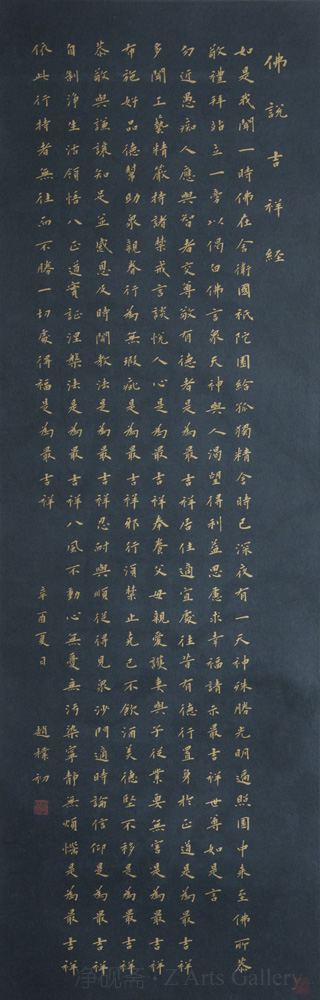 佛說吉祥經
如是我聞一時佛在舍衛國祇陀園給孤獨精舍時已深夜有一天神殊勝光明遍照園中來至佛所恭
敬禮拜站立一旁以偈白佛言眾天神與人渴望得利益思慮求幸福請示最吉祥世尊如是言
勿近愚痴人應與智者交尊敬有德者是為最吉祥居住適宜處往昔有德行置身於正道是為最吉祥
多聞工藝精嚴持諸禁戒言談悅人心是為最吉祥奉養父母親愛護妻與子從業要無害是為最吉祥
布施好品德幫助眾親眷行為無瑕疵是為最吉祥邪行須禁止克己不飲酒美德堅不移是為最吉祥
恭敬與謙讓知足並感恩及時聞教法是為最吉祥忍耐與順從得見眾沙門適時論信仰是為最吉祥
自制淨生活領悟八正道實證涅槃法是為最吉祥八風不動心無憂無污染寧靜無煩惱是為最吉祥
依此行持者無往而不勝一切處得福是為最吉祥
辛酉夏日
趙樸初
净砚斋·Z Arts Gallery